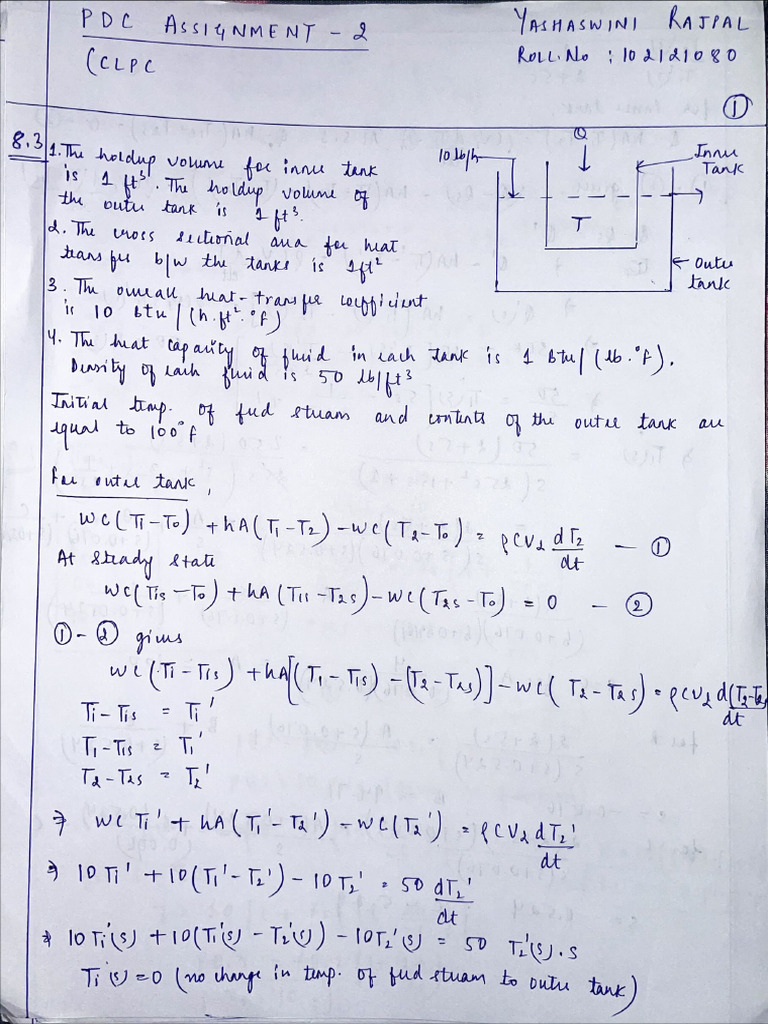 PDC ASSIGNMENT - 2
(CLPC
YASHASWINI RAJPAL
ROLL.No : 102121080
①
8.3
1. The holdup volume for inner tank
is 1 ft³. The holdup volume of
the outer tank is 1 ft³.
2. The cross sectional area for heat
transfer b/w the tanks is 1ft²
3. The overall heat-transfer coefficient
is 10 btu/(h.ft².°f)
4. The heat capacity of fluid in each tank is 1 Btu/(lb.°f).
Density of each fluid is 50 lb/ft³
Initial temp. of feed stream and contents of the outer tank are
equal to 100°f
10 lb/h
Q
Inner
Tank
T
Outer
tank
For outer tank,
WC(Ti-To) + hA(T1-T2) - WC(T2-To) = ρCV2 dT2/dt — ①
At steady state
WC(Tis-To) + hA(T1s-T2s) - WC(T2s-To) = 0 — ②
①-② gives
WC(Ti-Tis) + hA[(T1-T1s) - (T2-T2s)] - WC(T2-T2s) = ρCV2 d(T2-T2s
dt
Ti-Tis = Ti'
T1-T1s = T1'
T2-T2s = T2'
⇒ WCTi' + hA(T1'-T2') - WC(T2') = ρCV2 dT2'/dt
⇒ 10Ti' + 10(T1'-T2') - 10T2' = 50 dT2'/dt
⇒ 10Ti'(s) + 10(T1'(s) - T2'(s)) - 10T2'(s) = 50 T2'(s).s
Ti'(s) = 0 (no change in temp. of feed stream to outer tank)